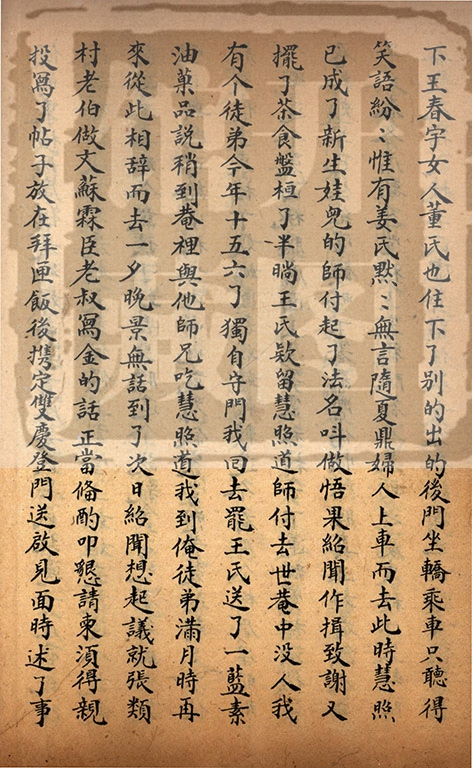 下王春宇女人董氏也住下了别的出的後門坐轎乘車只聽得
笑語紛〻惟有姜氏黙〻無言隨夏鼎婦人上車而去此時慧照
已成了新生娃兒的師付起了法名呌做悟果紹聞作揖致謝又
擺了茶食盤桓了半晌王氏欵留慧照道師付去世菴中没人我
有个徒弟今年十五六了獨自守門我回去罷王氏送了一籃素
油菓品説稍到菴裡與他師兄吃慧照道我到俺徒弟滿月時再
來從此相辞而去一夕晚景無話到了次日紹聞想起議就張類
村老伯做文蘇霖臣老叔寫金的話正當俻酌叩懇請柬須得親
投寫了帖子放在拜匣飯後携定雙慶登門送啟見面時述了事